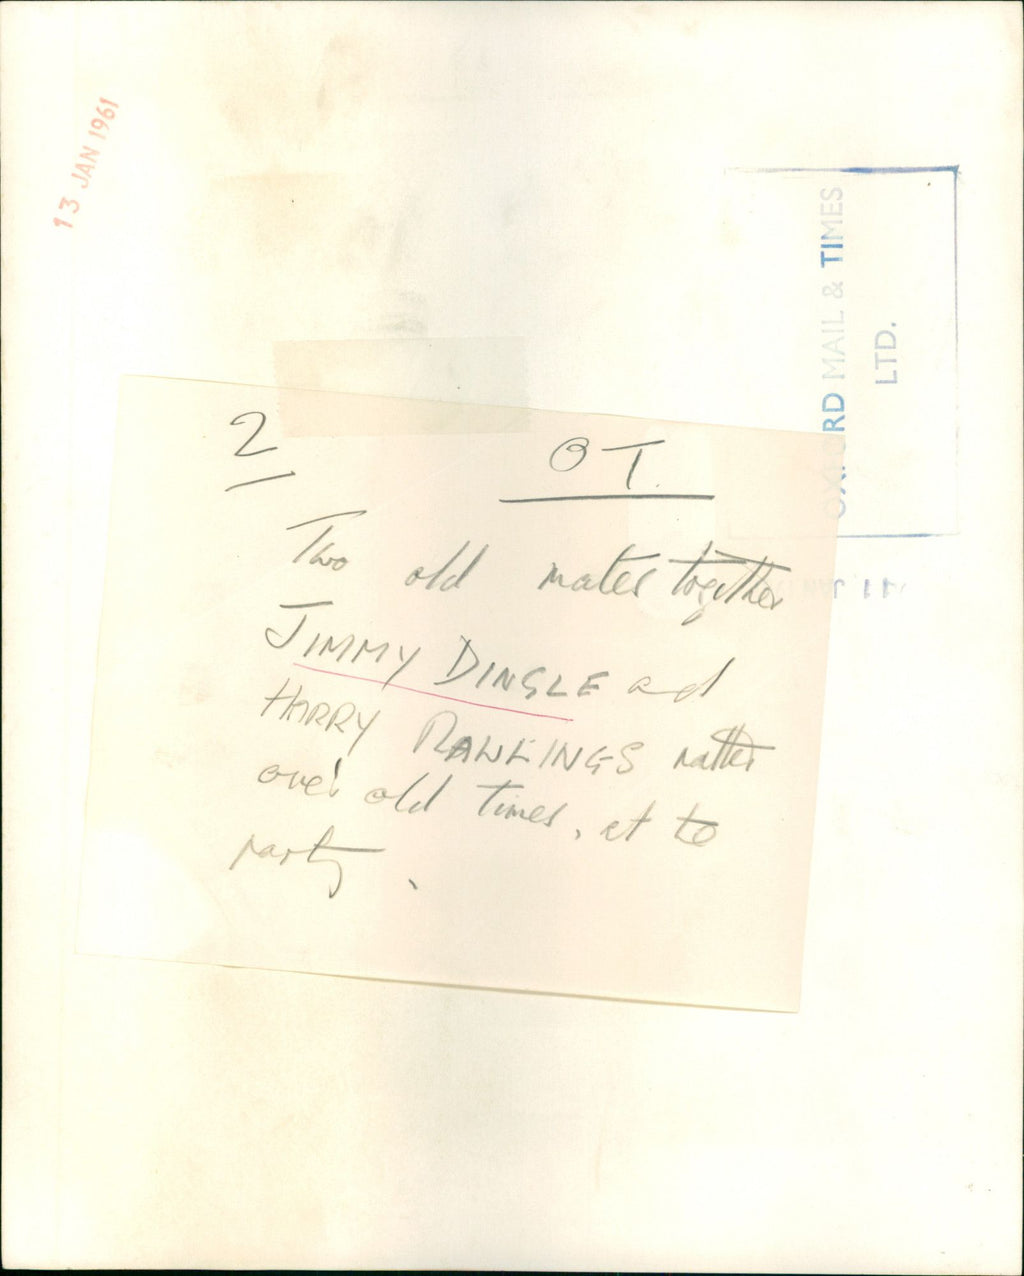 13 JAN 1961
OXFORD MAIL & TIMES
LTD.
2
OT.
Two old mates together
JIMMY DINGLE and
HARRY RAWLINGS natter
over old times, at to
party.
11 JAN